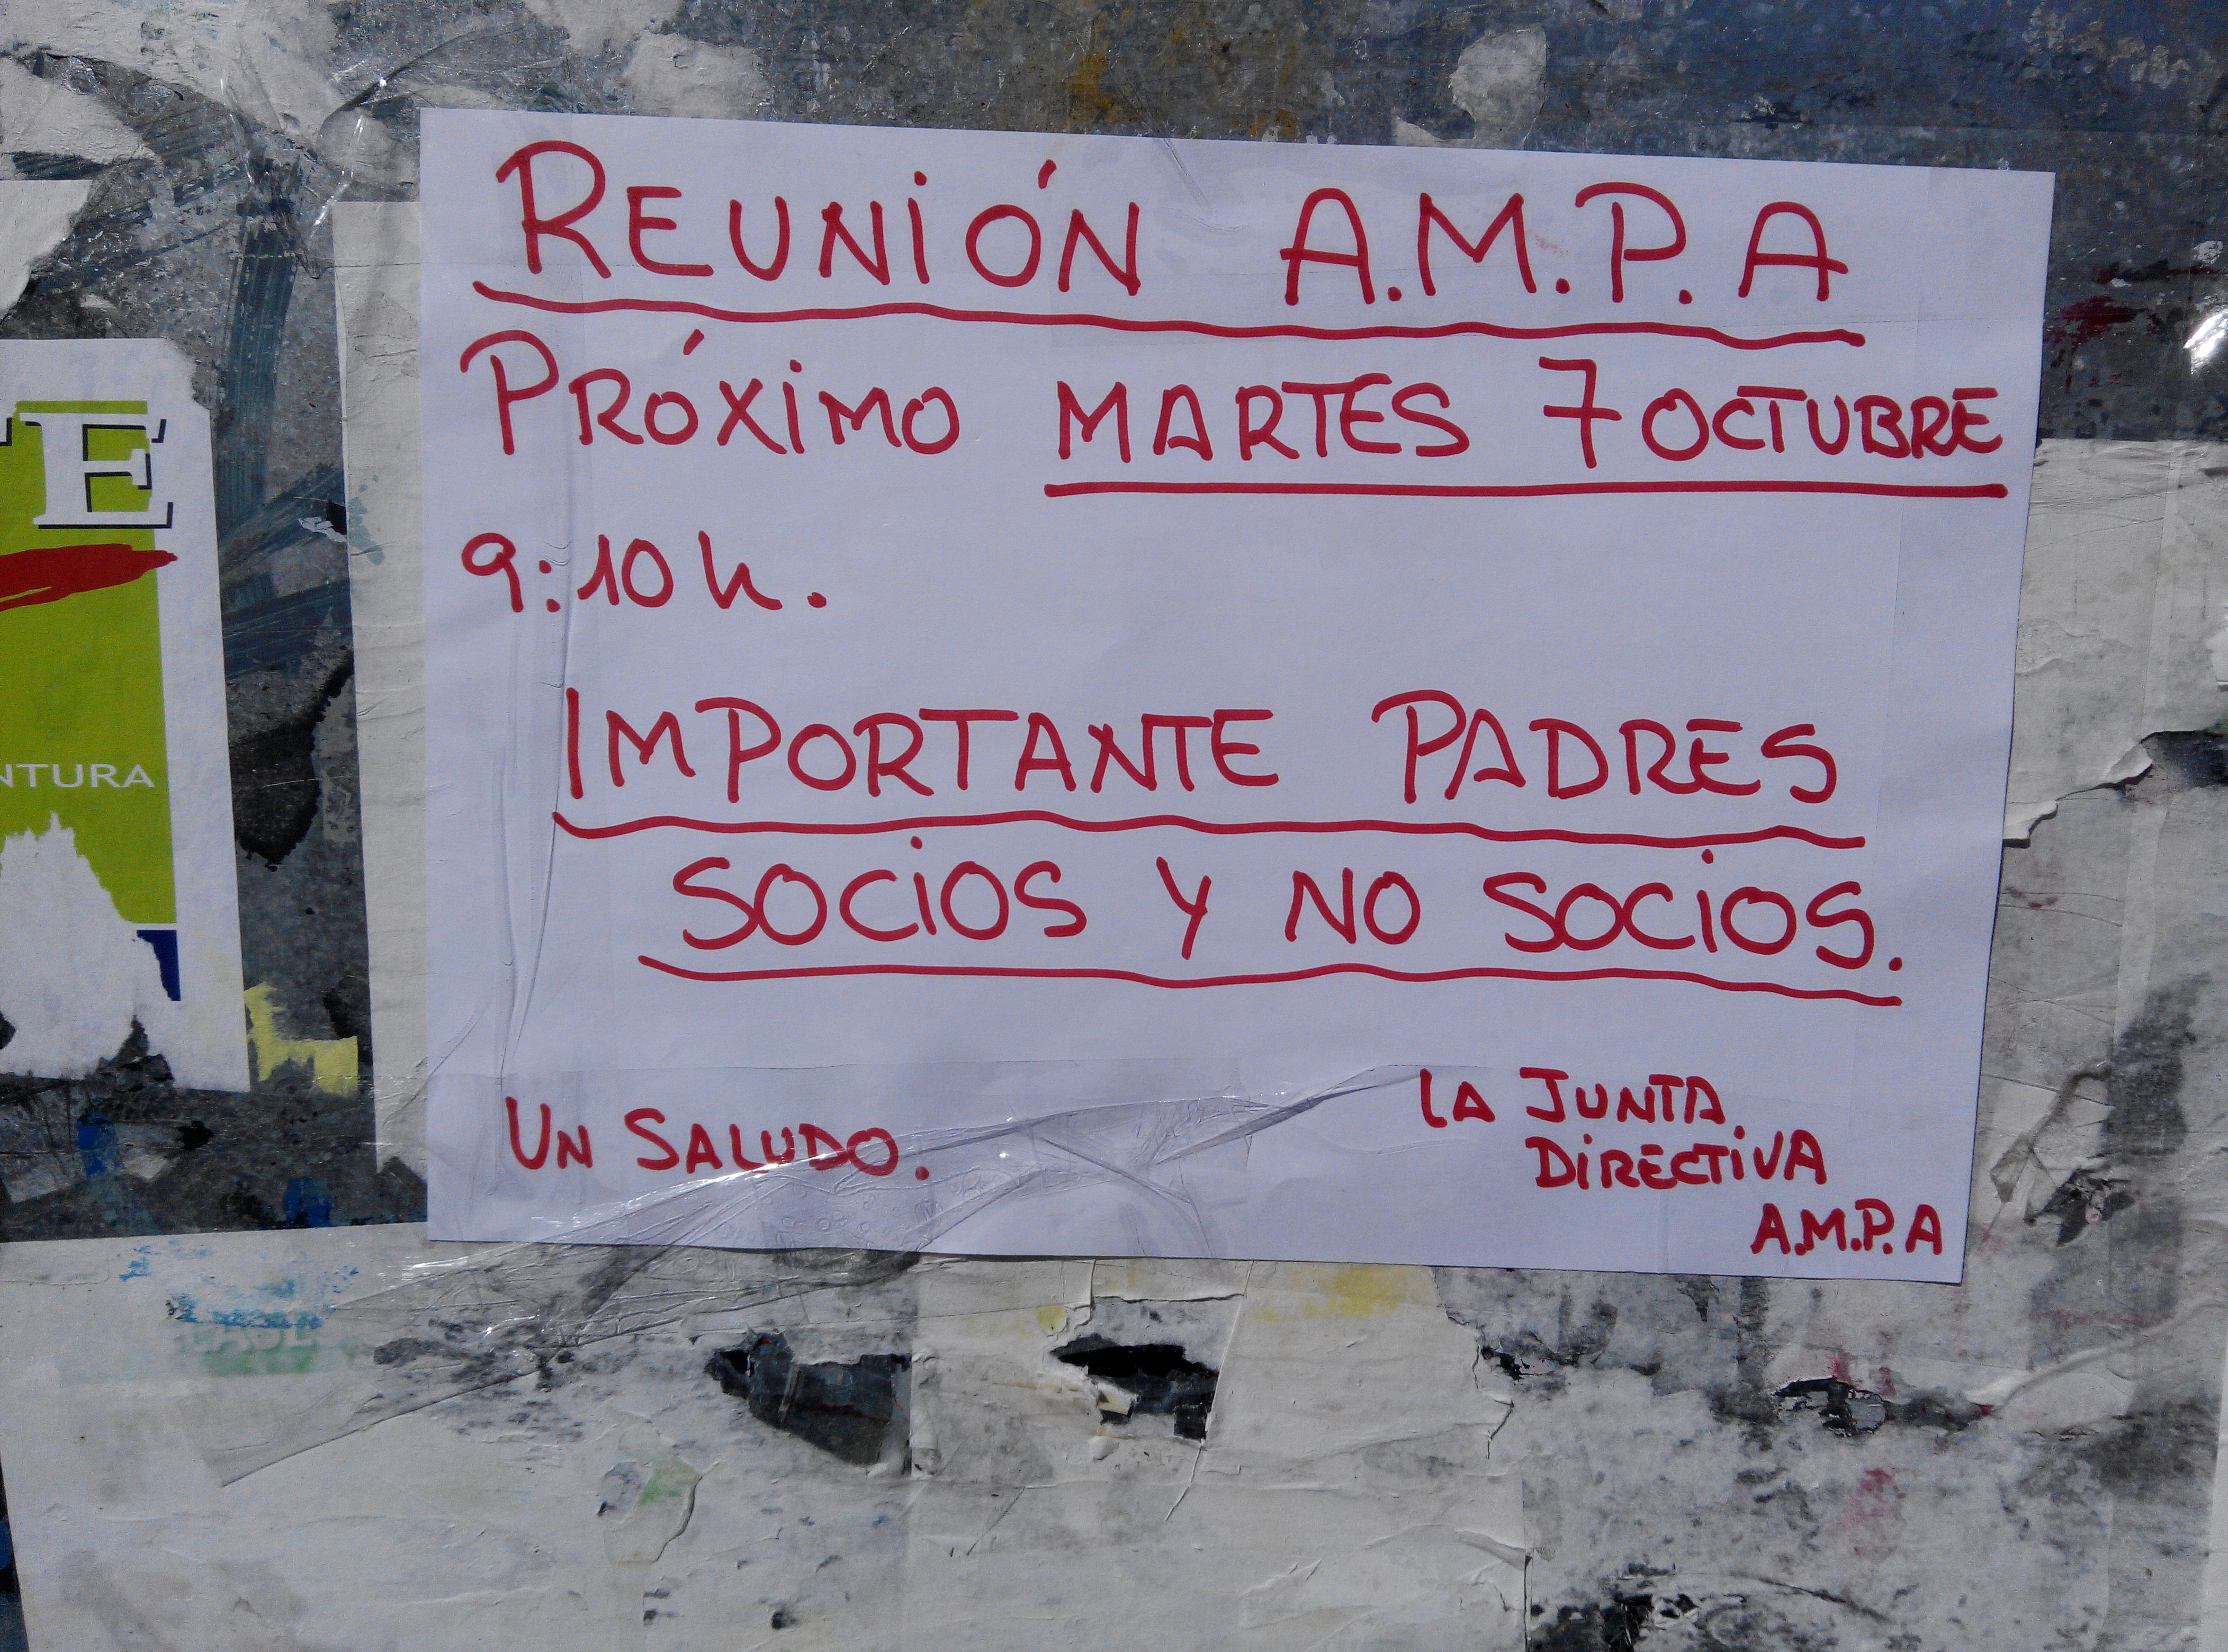 REUNIÓN A.M.P.A
PRÓXIMO MARTES 7 OCTUBRE
9:10 h.
IMPORTANTE PADRES
SOCIOS Y NO SOCIOS.
UN SALUDO.
LA JUNTA
DIRECTIVA
A.M.P.A
E
NTURA